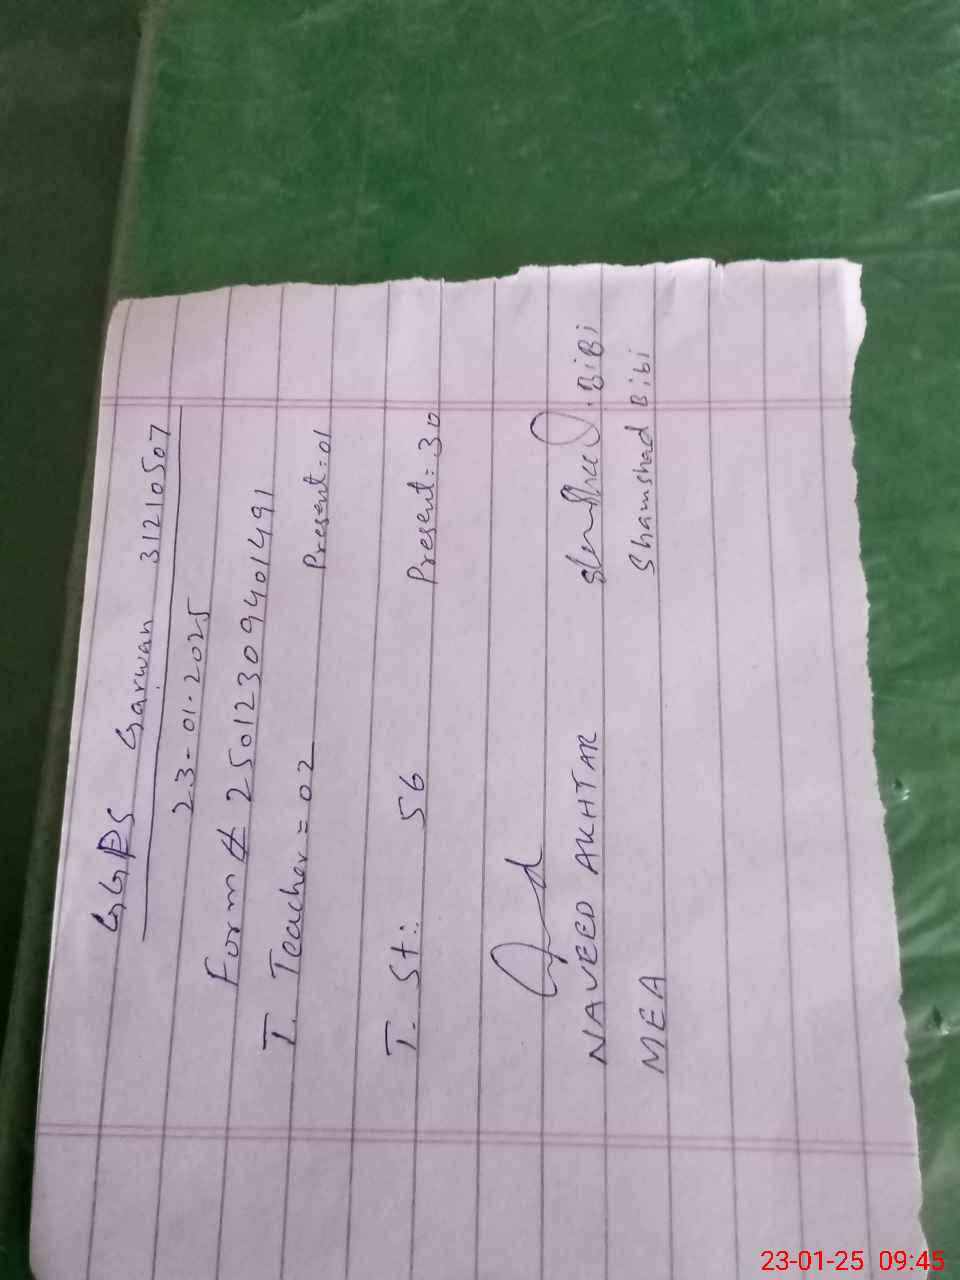 GGPS Garwan 31210507
23-01-2025
Form # 25012309401491
T. Teacher = 02 Present: 01
T. St: 56 Present: 30
NAVEED AKHTAR
MEA
BiBi
Shamshad Bibi
23-01-25 09:45